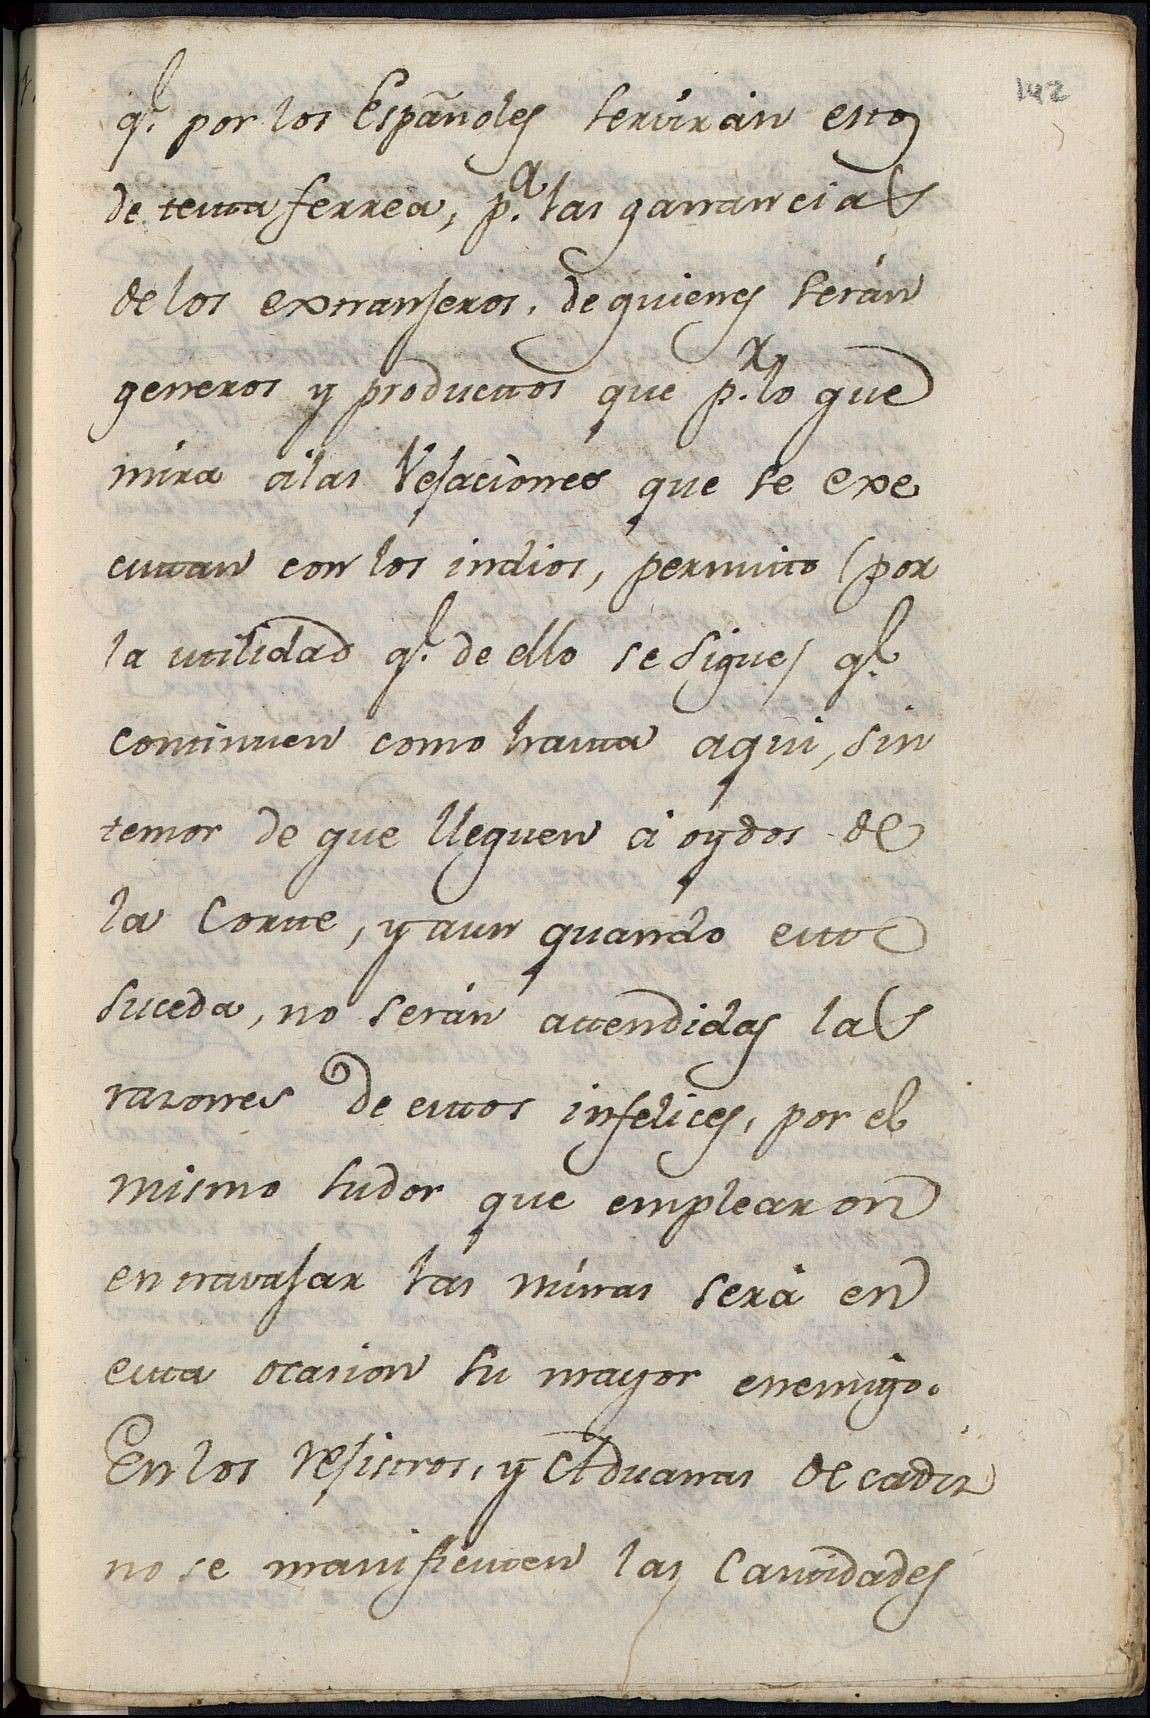 142
q.e por los Españoles servirán estos
de testa ferrea, p.a las ganancias
de los extranjeros, de quienes serán
generos y productos que p.r lo que
mira á las Vejaciones que se exe
cutan con los indios, permito (por
la utilidad q.e de ello se sigue) q.e
continuen como hasta aqui, sin
temor de que lleguen á oydos de
la Corte, y aun quando esto
suceda, no serán attendidas las
razones de estos infelices, por el
mismo sudor que emplearon
en travajar las minas será en
esta ocasion su mayor enemigo.
En los rejistros, y Aduanas de cadiz
no se manifiesten las Cantidades